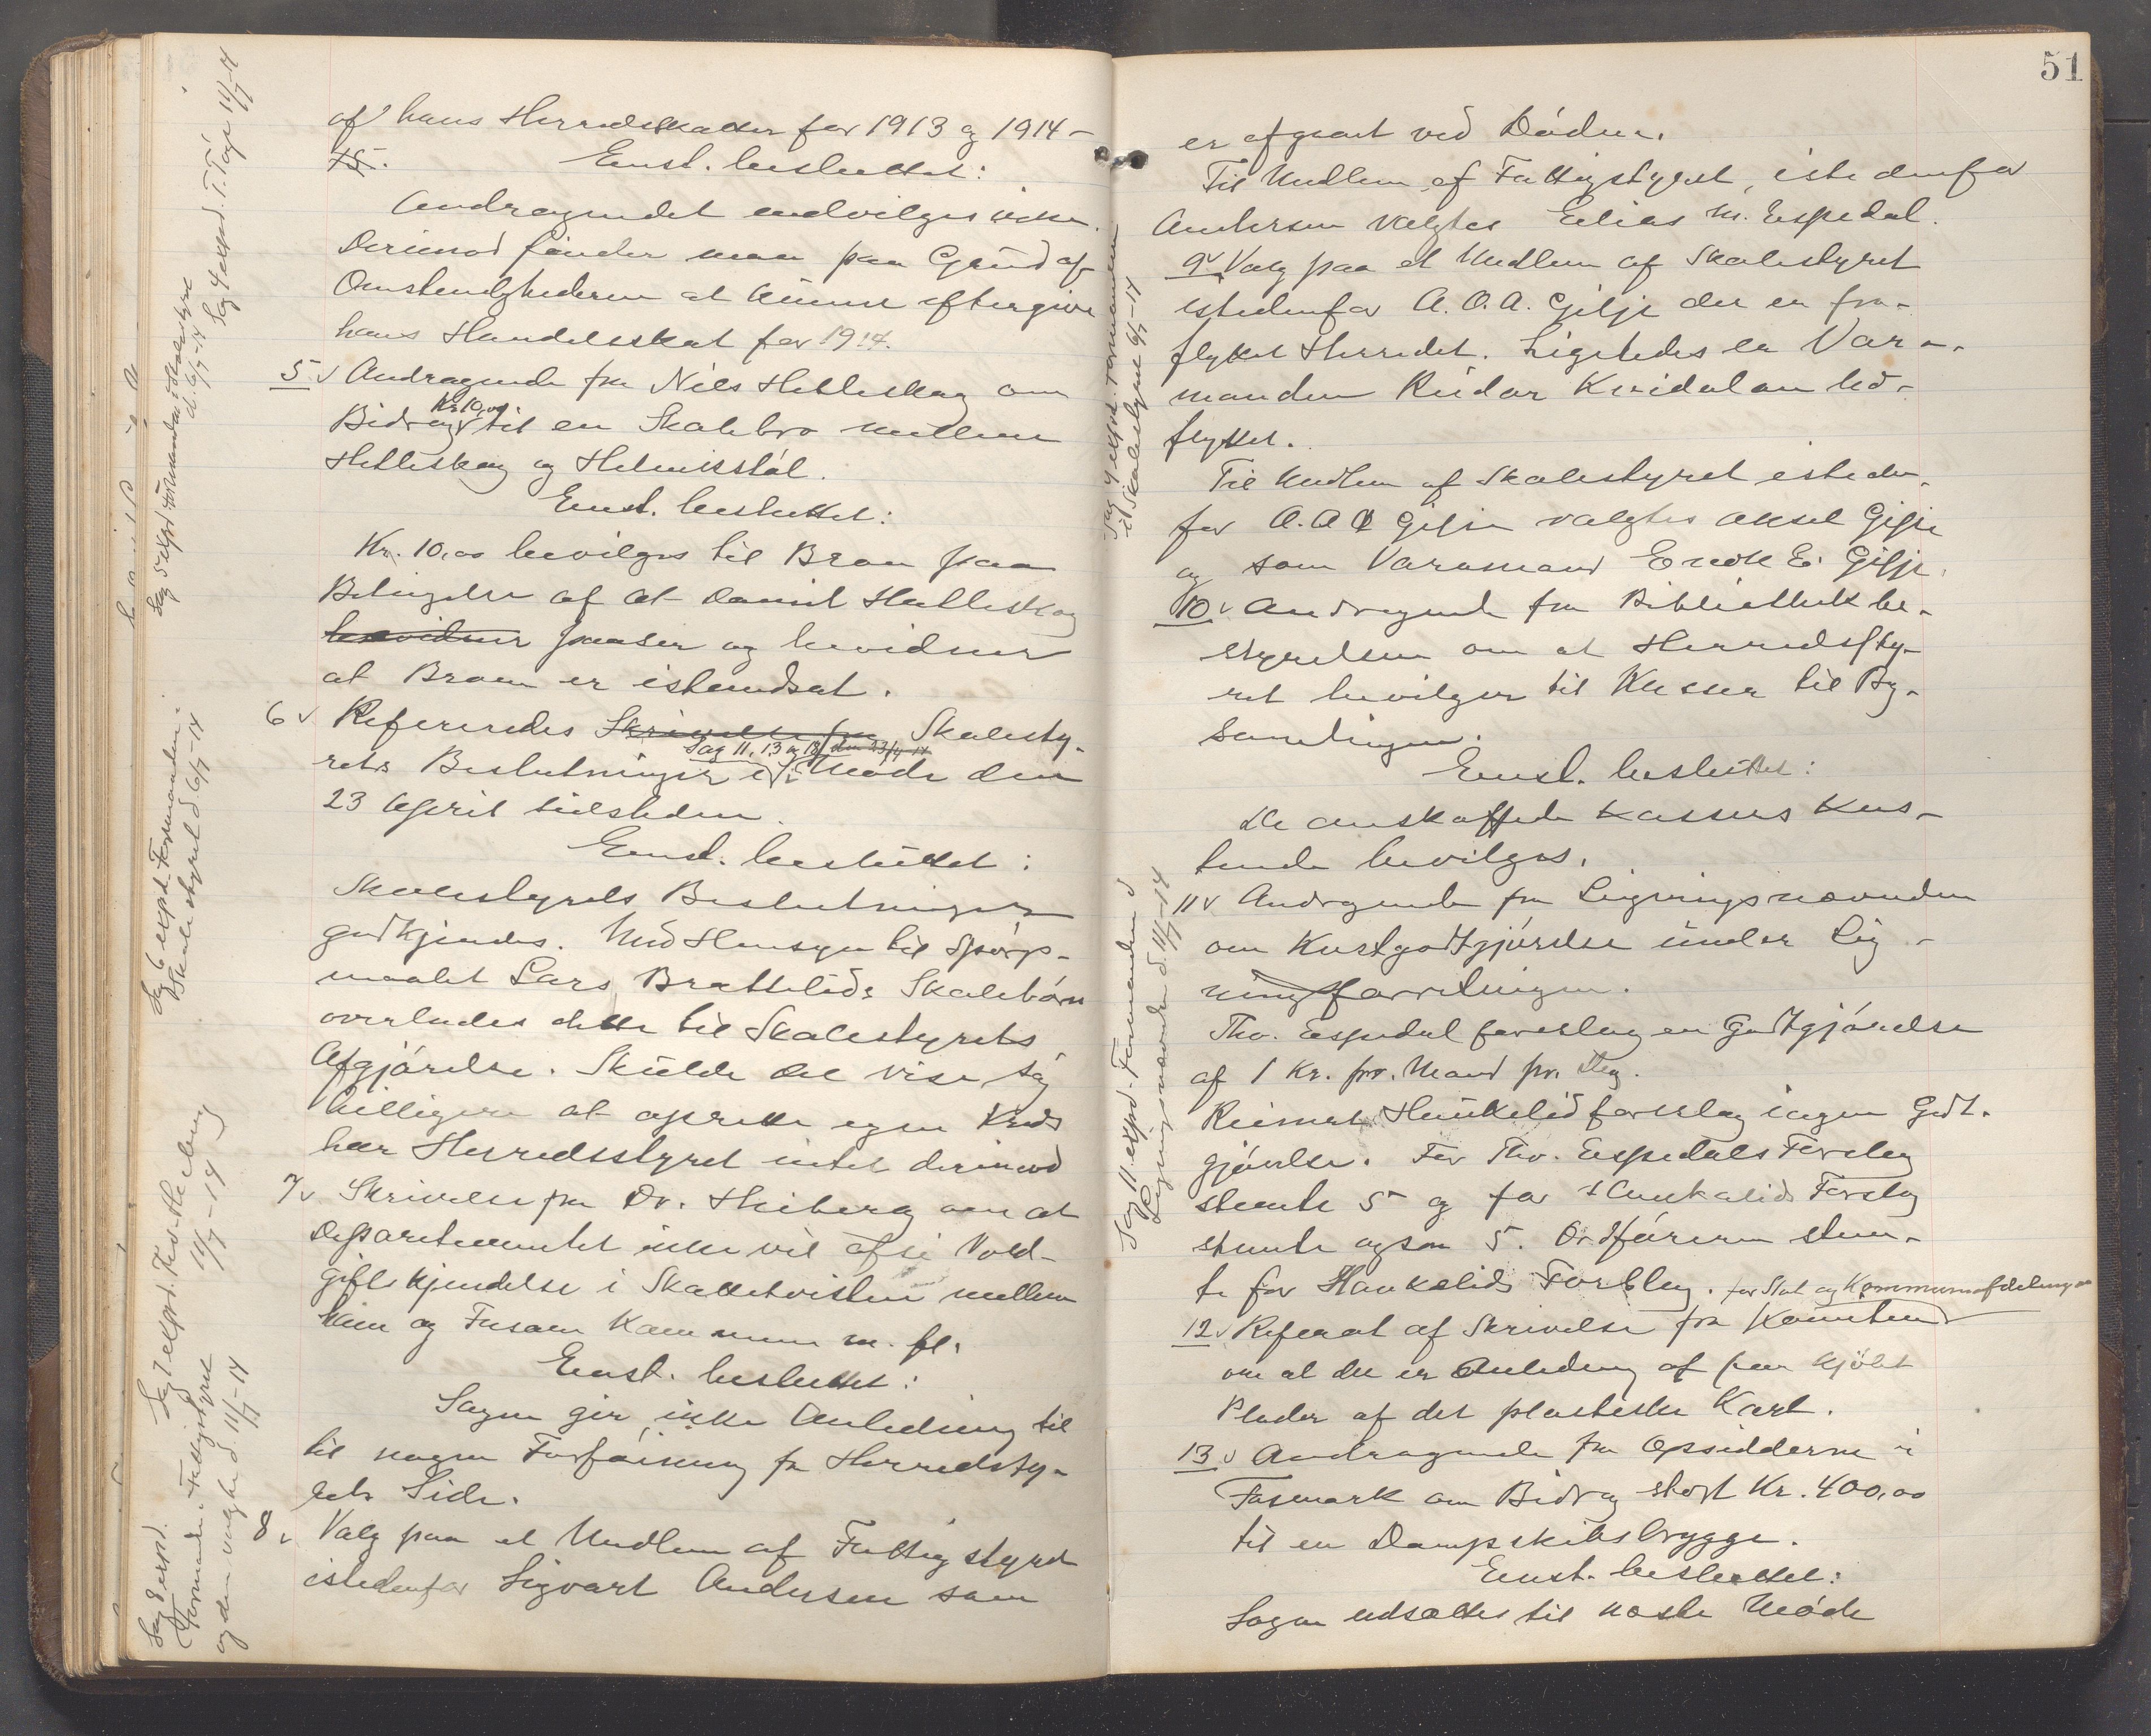 af hans Herredsskatter for 1913 og 1914-
15.
Enst. besluttet:
Andragendet indvilges ikke.
Derimod finder man paa Grund af
Omstendighederne at kunne eftergive
hans Handelsskat for 1914.
5 Andragende fra Nils Helleskog om
Bidrag Kr 10,00 til en Skolebro mellem
Helleskog og Helmikstøl.
Enst. besluttet:
Kr. 10,00 bevilges til Broen paa
Betingelse af at Daniel Helleskog
bevidner paaser og bevidner
at Broen er istandsat.
6 Refereredes Skrivelse fra Skolesty-
rets Beslutninger i Sag 11, 13 og 18 den 23/4 14 Møde den
23 April tilsteden.
Enst. besluttet:
Skolestyrets Beslutninger
godkjendes. Med Hensyn til Spørgs-
maalet Lars Brattelids Skolebørn
overlades dette til Skolestyrets
Afgjørelse. Skulde det vise sig
billigere at oprette egen Kreds
har Herredsstyret intet derimod
7 Skrivelse fra Dr. Heiberg om at
Departementet ikke vil afsi Vold-
giftskjendelse i Skattetvisten mellem
ham og Fusam Kommune m. fl.
Enst. besluttet:
Sagen gir ikke Anledning til
til nogen Forføining fra Herredsty-
rets Side.
8 Valg paa et Medlem af Fattigstyret
istedenfor Sigvart Andersen som
Sag 4 expd. T. Tøge 11/7-14
Sag 5 expd Formanden i Skolestyre
d. 6/7-14
Sag 6 expd. Formanden i
Skolestyret d. 6/7-14
Sag 7 expd. Frd. Heiberg
11/7-14
Sag 8 expd.
Formanden i Fattigstyret
og den valgte d. 11/7-14
51
er afgaaet ved Døden.
Til Medlem af Fattigstyret, istedenfor
Andersen valgtes Elias M. Espedal.
9 Valg paa et Medlem af Skolestyret
istedenfor A. O. A. Gilje der er fra-
flyttet Herredet. Ligeledes er Vara-
manden Reidar Kvidaland ud-
flyttet.
Til Medlem af Skolestyret isteden-
for A. O. A. Gilje valgtes Aksel Gilje
og som Varamand Enok E. Gilje.
10 Andragende fra Bibliothekbe-
styrelsen om at Herredssty-
ret bevilger til Kasser til Bog-
samlingen.
Enst. besluttet:
De anskaffede Kassers Kos-
tende bevilges.
11 Andragende fra Ligningsnævnden
om Kostgodtgjørelse under Lig-
ningsforretningen.
Tho. Espedal foreslog en Godtgjørelse
af 1 Kr. pr. Mand pr. Dag.
Reimert Haukelid foreslog ingen Godt-
gjørelse. For Tho. Espedals Forslag
stemte 5 og for Haukalids Forslag
stemte ogsaa 5. Ordføreren stem-
te for Haukelids Forslag.
12 Referat af Skrivelse fra Komiteen for Stat og Kommuneafdelingen
om at der er Anledning af faa kjøbt
Plader af det plastiske Kart.
13 Andragende fra Opsidderne i
Fosmark om Bidrag stort Kr. 400,00
til en Dampskibsbrygge.
Enst. besluttet:
Sagen udsættes til næste Møde
Sag 9 expd. Formanden
i Skolestyret 6/7-14
Sag 11 expd. Formanden i
Ligningsnævnden d. 11/7-14